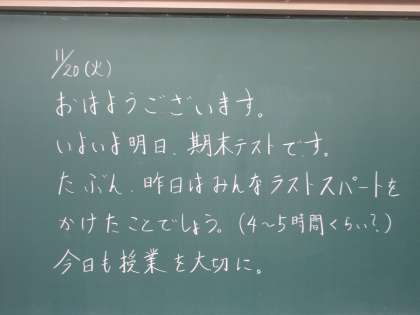 11/20(火)
おはようございます。
いよいよ明日、期末テストです。
たぶん、昨日はみんなラストスパートを
かけたことでしょう。(4〜5時間くらい?)
今日も授業を大切に。